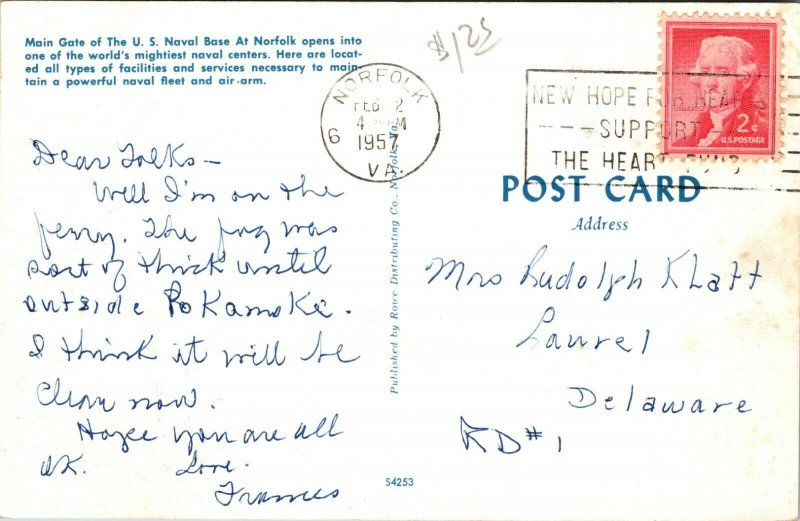 Main Gate of The U. S. Naval Base At Norfolk opens into
one of the world's mightiest naval centers. Here are locat-
ed all types of facilities and services necessary to main-
tain a powerful naval fleet and air-arm.
$1.25
NORFOLK
FEB 2
4 PM
1957
6
VA.
NEW HOPE FOR HEAR
SUPPORT
THE HEART FUND
2¢
U.S. POSTAGE
POST CARD
Address
Dear Folks –
Well I'm on the
ferry. The fog was
sort of thick until
outside Pokamoke.
I think it will be
clear now.
Hope you are all
OK. Love.
Frances
Published by Rowe Distributing Co., Norfolk, Va.
Mrs Rudolph Klatt
Laurel
Delaware
RD#1
S4253